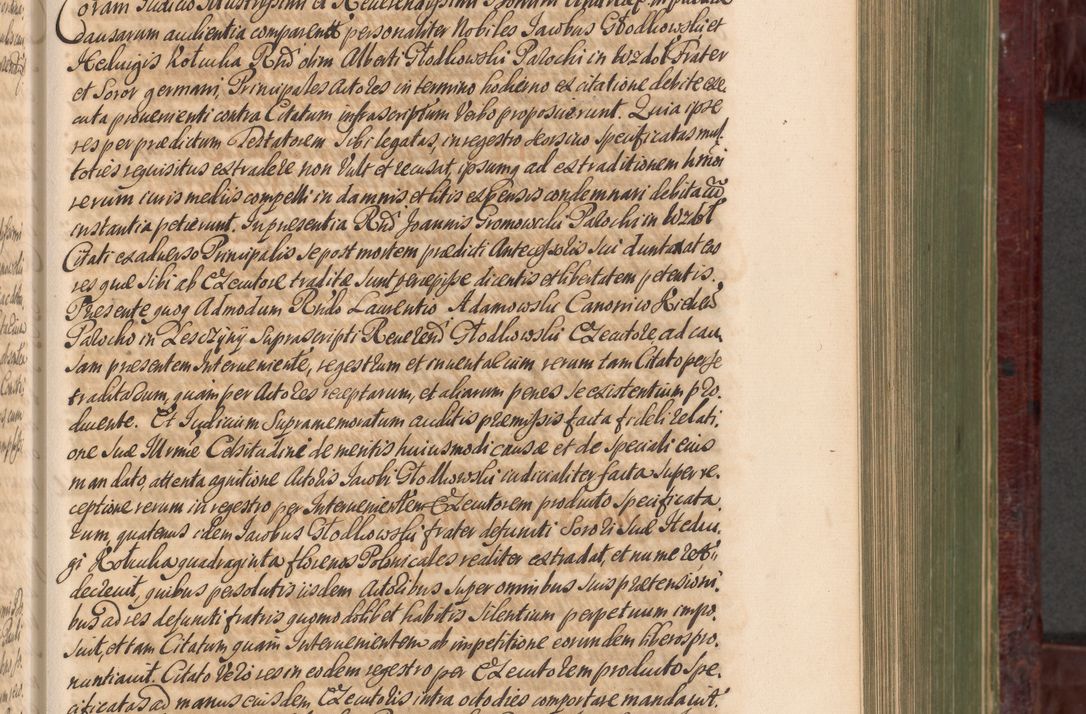 Coram Judicio Illustrissimi et Reverendissimi
Causarum audientia comparentes personaliter Nobiles Jacobus Głodkowski et
Hedvigis Kotucha Rndi olim Alberti Głodkowski Parochi in Wzdoł Frater
et Soror germani, Principales Actores in termino hodierno ex citatione debite exe
cuta provenienti contra Citatum infrascriptum Verbo proposuerunt. Quia ipse
res per prædictum Testatorem sibi legatas, in regestro specificatas mul
toties requisitus extradere non vult et recusat, ipsumq ad extraditionem hmoi
rerum iuris mediis compelli in damnis et litis expensis condemnari debita cũ
instantia petierunt. In præsentia Rndi Joannis Gromowski Parochi in Wzdoł
Citati ex adverso Principalis se post mortem prædicti Antecessoris sui duntaxat eas
res quæ sibi ab Executore traditæ sunt percepisse dicentis et libertatem petentis.
Præsente quoq Admodum Rndo Laurentio Adamowski Canonico Kielcen
Parocho in Leszczyny suprascripti Reverendi Głodkowski Executore ad cau
sam præsentem Interveniente, regestrum et inventarium rerum tam Citato per se
traditarum, quam per Actores receptarum, et aliarum penes se existentium pro
ducente. Et Judicium Supramemoratum auditis præmissis facta fideli relati
one suæ Illrmæ Celsitudini de meritis huiusmodi causæ et de speciali eius
mandato, attenta agnitione Actoris Jacobi Głodkowski iudicialiter facta super re
ceptione rerum in regestro per Intervenientem Executorem producto specificata
rum, quatenus idem Jacobus Głodkowski frater defuncti Sorori suæ Hedvi
gi Kotucha quadraginta florenos Polonicales realiter extradat, et numeret
decrevit, quibus persolutis iisdem Actoribus super omnibus suis prætensioni
bus ad res defuncti fratris quomodolibet habitis silentium perpetuum impo
suit, et tam Citatum quam Intervenientem ab impetitione eorundem liberos pro
nuntiavit. Citato vero res in eodem regestro per Executorem producto spe
cificatas ad manus eiusdem Executoris intra octo dies comportare mandavit.